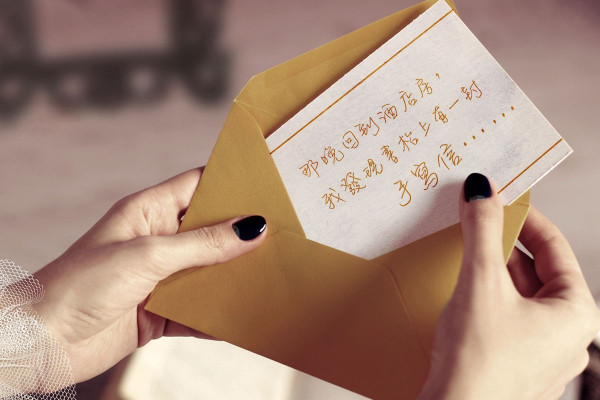 那晚回到酒店房,
我發現書枱上有一封
手寫信......